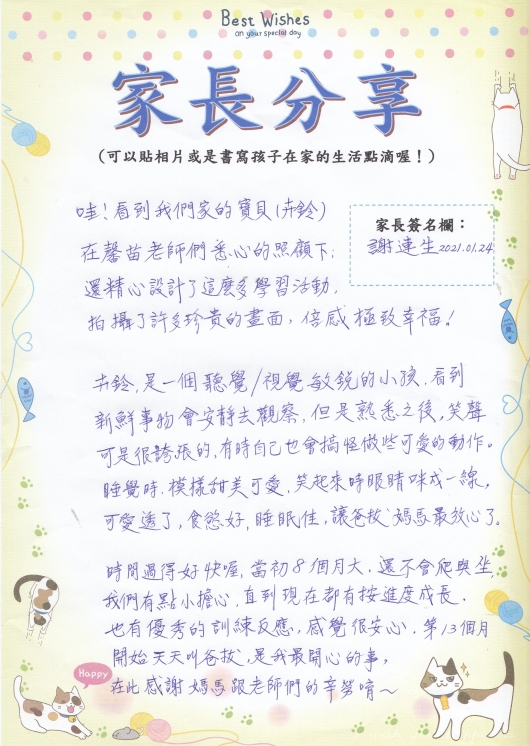 Best Wishes
on your special day
家長分享
(可以貼相片或是書寫孩子在家的生活點滴喔！)
哇！看到我們家的寶貝(卉鈴)
家長簽名欄：
謝連生2021.01.24
在馨苗老師們悉心的照顧下；
還精心設計了這麼多學習活動，
拍攝了許多珍貴的畫面，倍感極致幸福！
卉鈴，是一個聽覺/視覺敏銳的小孩，看到
新鮮事物會安靜去觀察，但是熟悉之後，笑聲
可是很誇張的，有時自己也會搞怪做些可愛的動作。
睡覺時，模樣甜美可愛，笑起來時眼睛咪成一線，
可愛透了，食慾好，睡眠佳，讓爸拔、媽馬最放心了。
時間過得好快喔，當初8個月大，還不會爬與坐，
我們有點小擔心，直到現在都有按進度成長，
也有優秀的訓練反應，感覺很安心，第13個月
開始天天叫爸拔，是我最開心的事，
在此感謝媽馬跟老師們的辛勞唷～
Happy